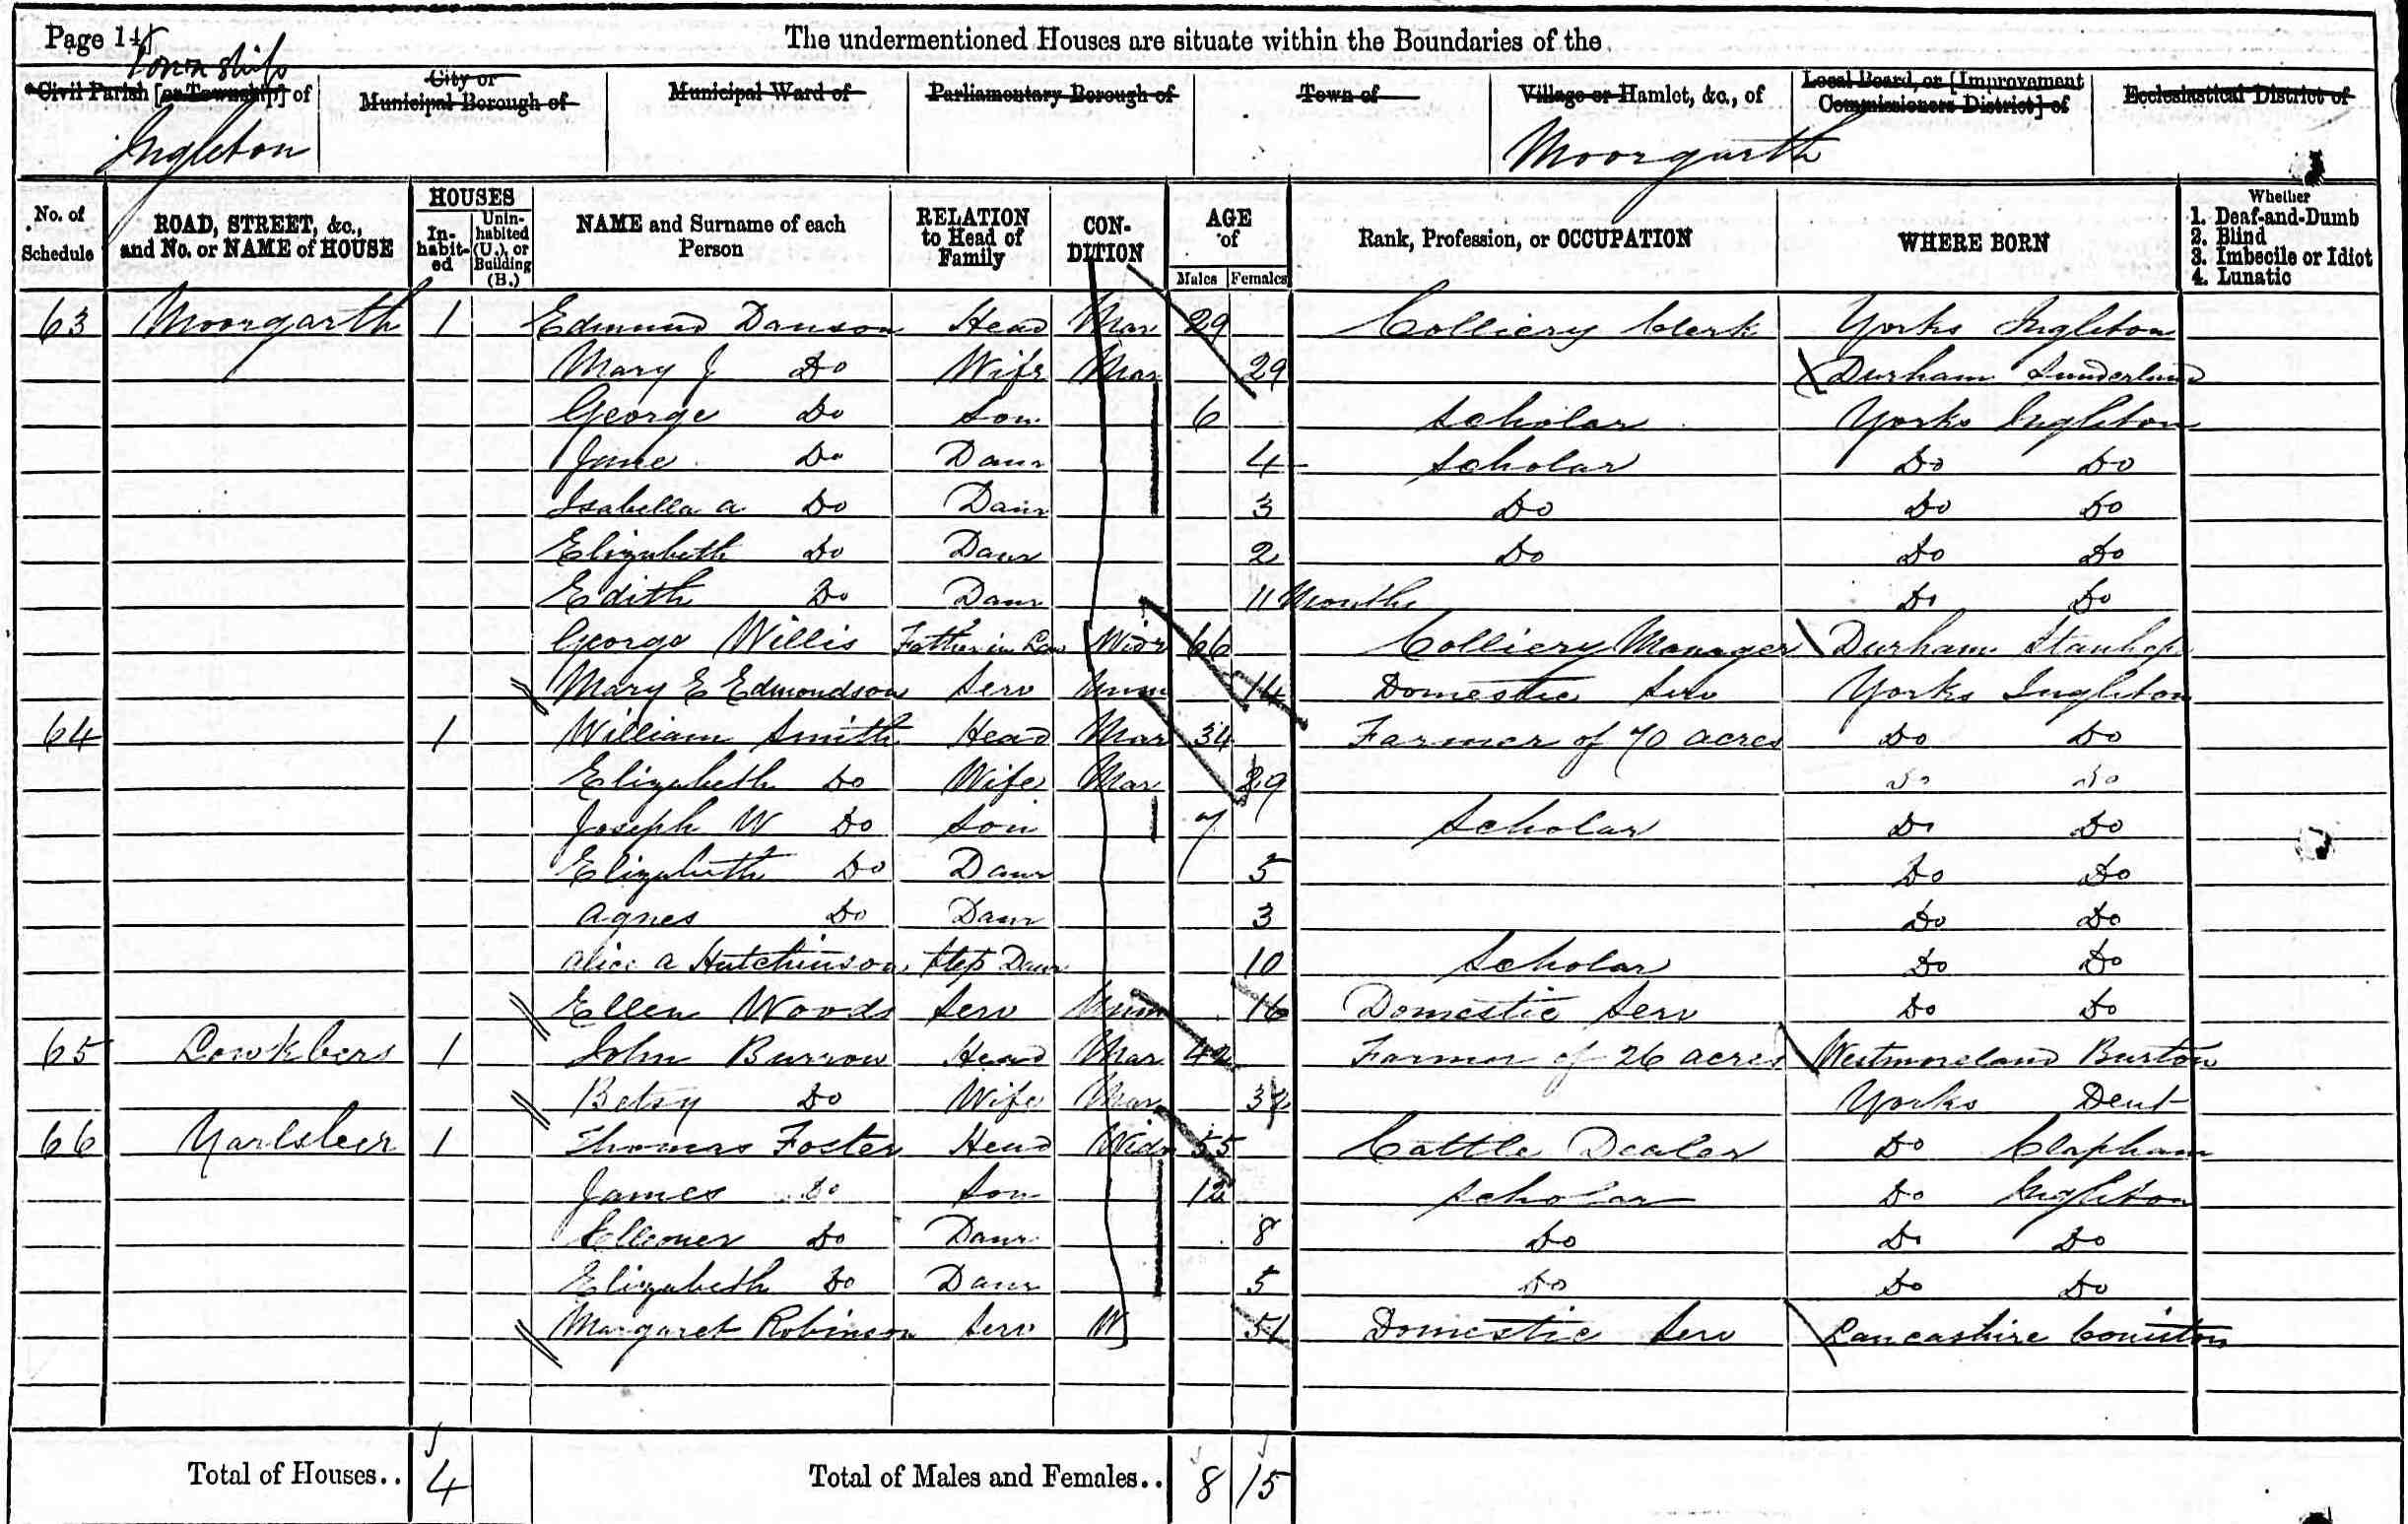 Page 15
The undermentioned Houses are situate within the Boundaries of the
Township
Civil Parish [or Township] of
City or Municipal Borough of
Municipal Ward of
Parliamentary Borough of
Town of
Village or Hamlet, &c., of
Local Board, or [Improvement Commissioners District] of
Ecclesiastical District of
Ingleton
Moorgarth
No. of Schedule
ROAD, STREET, &c., and No. or NAME of HOUSE
HOUSES
In-habit-ed
Unin-habited (U.), or Building (B.)
NAME and Surname of each Person
RELATION to Head of Family
CON-DITION
AGE of
Males Females
Rank, Profession, or OCCUPATION
WHERE BORN
Whether
1. Deaf-and-Dumb
2. Blind
3. Imbecile or Idiot
4. Lunatic
63 Moorgarth 1 Edmund Danson Head Mar 29 Colliery Clerk Yorks Ingleton
Mary J Do Wife Mar 29 Durham Sunderland
George Do Son 6 Scholar Yorks Ingleton
Jane Do Daur 4 Scholar Do Do
Isabella A Do Daur 3 Do Do Do
Elizabeth Do Daur 2 Do Do Do
Edith Do Daur 11 Months Do Do
George Willis Father in Law Widr 66 Colliery Manager Durham Stanhop
Mary E Edmondson Serv Unm 14 Domestic Serv Yorks Ingleton
64 1 William Smith Head Mar 34 Farmer of 70 acres Do Do
Elizabeth Do Wife Mar 29 Do Do
Joseph W Do Son 7 Scholar Do Do
Elizabeth Do Daur 5 Do Do
Agnes Do Daur 3 Do Do
Alice A Hutchinson Step Daur 10 Scholar Do Do
Ellen Woods Serv Unm 16 Domestic Serv Do Do
65 Lowkbers 1 John Burrow Head Mar 42 Farmer of 26 acres Westmoreland Burton
Betsy Do Wife Mar Yorks Dent
66 Yarlsber 1 Thomas Foster Head Widr 55 Cattle Dealer Do Clapham
James Do Son 12 Scholar Do Ingleton
Elleoner Do Daur 8 Do Do Do
Elizabeth Do Daur 5 Do Do Do
Margaret Robinson Serv W 51 Domestic Serv Lancashire Coniston
Total of Houses.. 4
Total of Males and Females.. 8 15